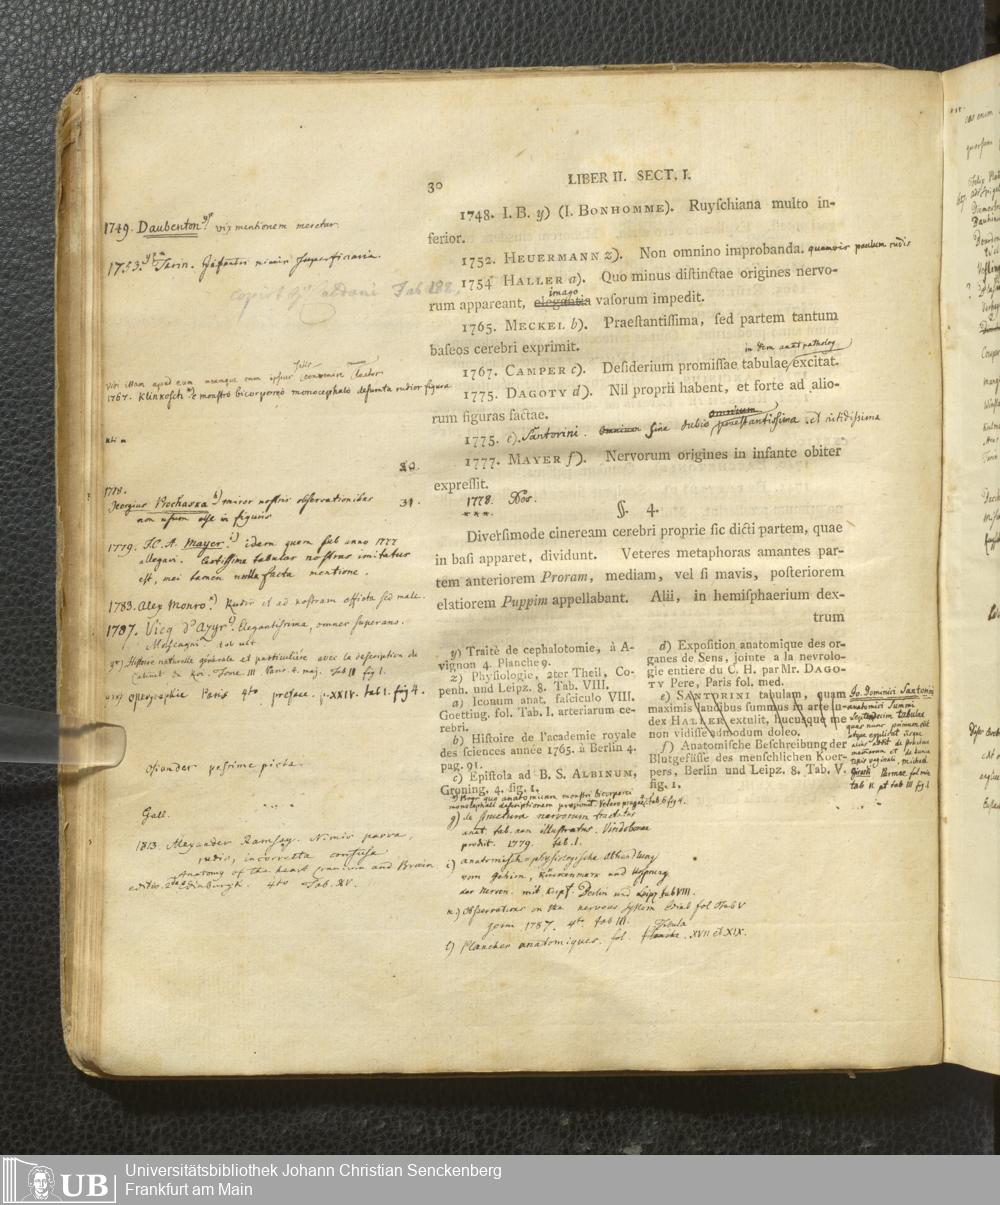 30
LIBER II. SECT. I.
1748. I. B. y) (I. BONHOMME). Ruyſchiana multo in-
ferior.
1752. HEUERMANN z). Non omnino improbanda. quamvis paulum rudis
1754 HALLER a). Quo minus diſtinctae origines nervo-
imago
rum appareant, elegantia vaſorum impedit.
1765. MECKEL b). Praeſtantiſſima, ſed partem tantum
baſeos cerebri exprimit.
1767. CAMPER c). Deſiderium promiſſae tabulae excitat.
1775. DAGOTY d). Nil proprii habent, et forte ad alio-
rum figuras factae.
1775. e). Santorini. ſine dubio praeſtantiſſima et nitidiſſima
1777. MAYER f). Nervorum origines in infante obiter
expreſſit.
1778.
***
§. 4.
Diverſimode cineream cerebri proprie ſic dicti partem, quae
in baſi apparet, dividunt. Veteres metaphoras amantes par-
tem anteriorem Proram, mediam, vel ſi mavis, poſteriorem
elatiorem Puppim appellabant. Alii, in hemiſphaerium dex-
trum
y) Traité de cephalotomie, à A-
vignon 4. Planche 9.
z) Phyſiologie, 2ter Theil, Co-
penh. und Leipz. 8. Tab. VIII.
a) Iconum anat. faſciculo VIII.
Goetting. fol. Tab. I. arteriarum ce-
rebri.
b) Hiſtoire de l'academie royale
des ſciences année 1765. à Berlin 4.
pag. 91.
c) Epiſtola ad B. S. ALBINUM,
Groning. 4. fig. 1.
d) Expoſition anatomique des or-
ganes de Sens, jointe a la nevrolo-
gie entiere du C. H. par Mr. DAGO-
TY Pere, Paris fol. med.
e) SANTORINI tabulam, quam
maximis laudibus ſummus in arte iu-
dex HALLER extulit, hucusque me
non vidiſſe admodum doleo.
f) Anatomiſche Beſchreibung der
Blutgefäſſe des menſchlichen Koer-
pers, Berlin und Leipz. 8. Tab. V.
fig. 1.
1749. Daubenton vix mentionem meretur.
1753. Tarin.
1767. Klinkosch e monstro bicorporeo monocephalo desumta rudior figura
1778.
Georgius Prochaska h) minor nostris observationibus
non usum esse in figuris
31.
1779. I. C. A. Mayer. i) idem quem sub anno 1777
allegavi. Certissime tabulas nostras imitatus
est, mei tamen nulla facta mentione.
1783. Alex Monro. k) Rudis et ad nostram efficta sed male.
1787. Vicq d'Azyr l). Elegantissima, omnes superans.
Histoire naturelle générale et particulière avec la description du
Cabinet du Roi. Tome III. Paris 4. maj. Tab II fig 1.
Paris 4to preface. p. XXIV. tab. 1. fig 4.
Osiander pessime picta.
Gall.
1813. Alexander Ramsay. Nimis parva,
rudis, incorrecta confusa
Anatomy of the heart Cranium and Brain
editio 2da Edinburgh. 4to Tab. XV.
g) de structura nervorum tractatus
anat. tab. aen illustratus. Vindobonae
prodit. 1779. tab. 1.
i) anatomisch-physiologische Abhandlung
vom Gehirn, Rückenmark und Ursprung
der Nerven. mit Kupf. Berlin und Leipz tab VIII.
k) Observations on the nervous System Edinb fol Tab V
germ 1787. 4to tab III.
Tabula
l) Planches anatomiques. fol. Planche XVII et XIX.
Io. Dominici Santorini
anatomici Summi
Septemdecim tabulae
quas nunc primum edit
atque explicat iisque
alias addit de structura
mammarum et de tunica
testis vaginali. Michael
Girardi Parmae fol min
tab II. pt tab III fig 1
Universitätsbibliothek Johann Christian Senckenberg
Frankfurt am Main
UB